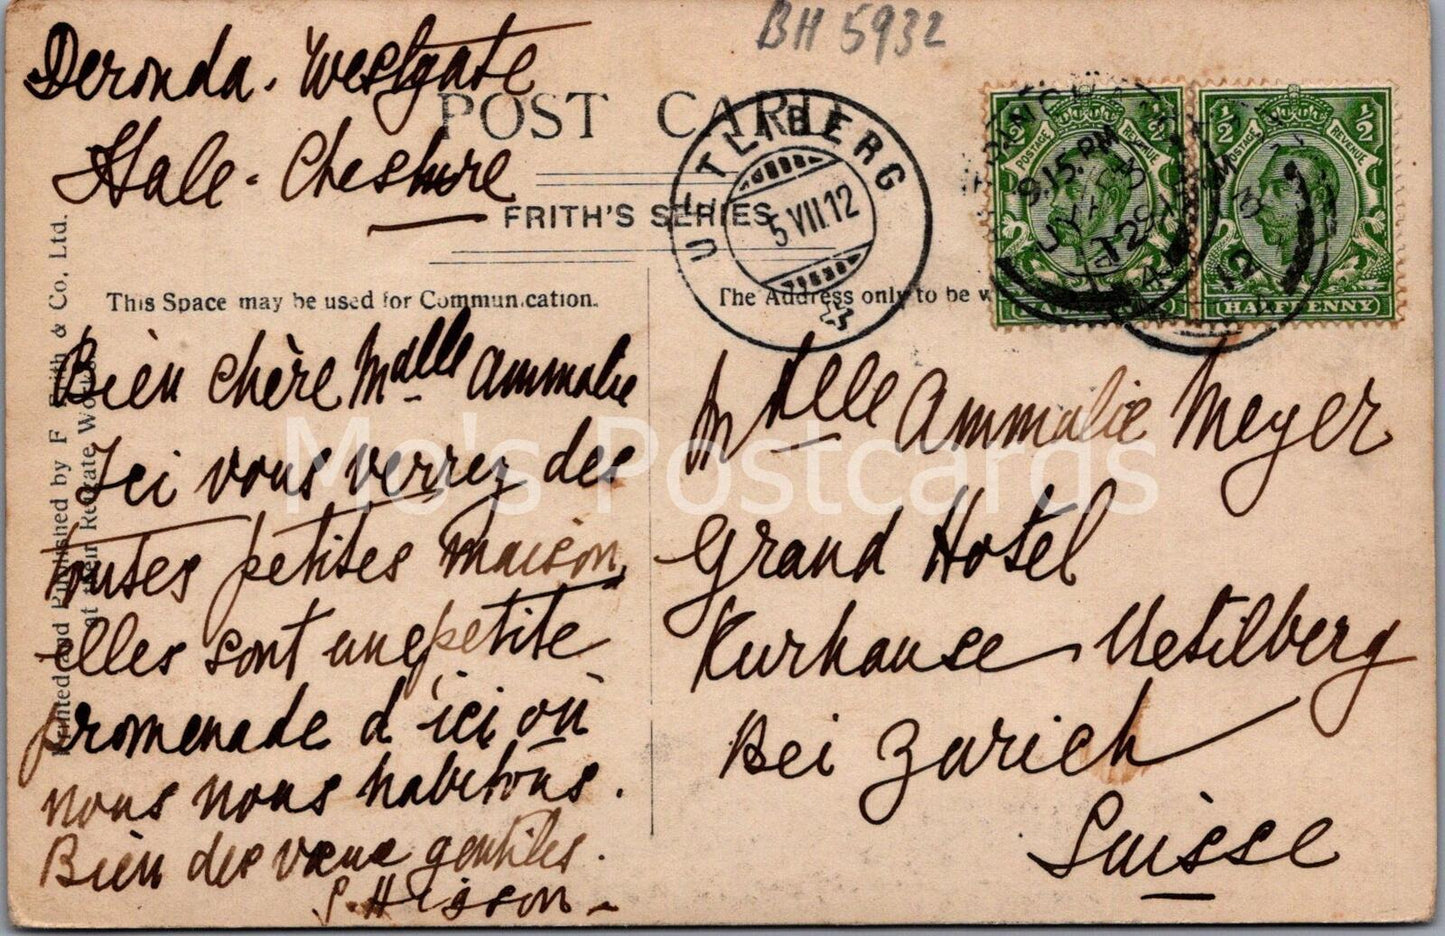 BH 5932
Deronda. Westgate
Hale - Cheshire
POST CARD
FRITH'S SERIES
UETLIBERG
5 VII.12
9.15.PM
12
HALFPENNY
POSTAGE REVENUE
This Space may be used for Communication.
The Address only to be w
Printed and Published by F Frith & Co., Ltd.
at their Reigate Works
Bien chère Mdlle Ammalie
Ici vous verrez des
toutes petites maison
elles sont une petite
promenade d'ici où
nous nous habitons.
Bien des vœux gentiles.
S. Hisson -
Mdlle Ammalie Meyer
Grand Hotel
Kurhause Uetilberg
Bei Zurich
Suisse
Mo's Postcards